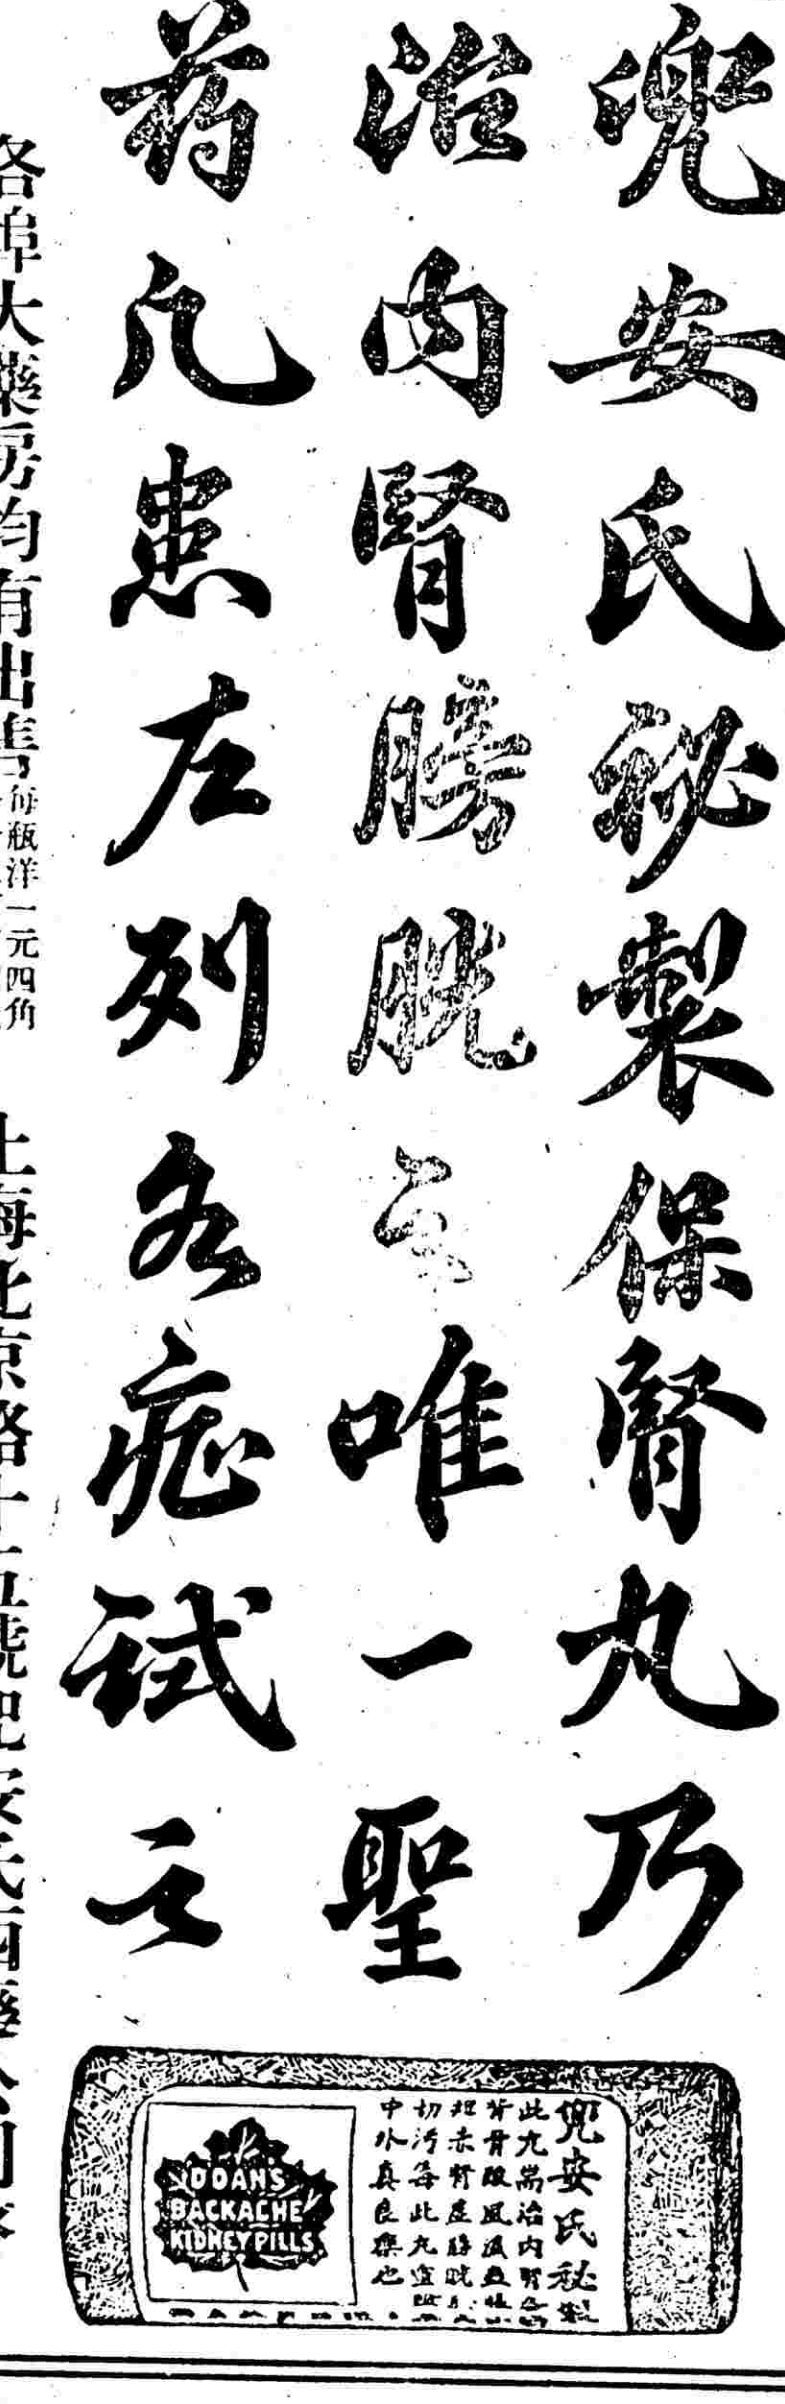 兜安氏秘製保腎丸乃
治内腎膀胱之唯一聖
药凡患左列各症試之
各埠大藥房均有出售
每瓶洋一元四角
上海北京路十五號兜安氏西藥公司
兜安氏秘製
此丸耑治内腎
背骨酸風濕
中外真良藥也
DOAN'S
BACKACHE
KIDNEY PILLS